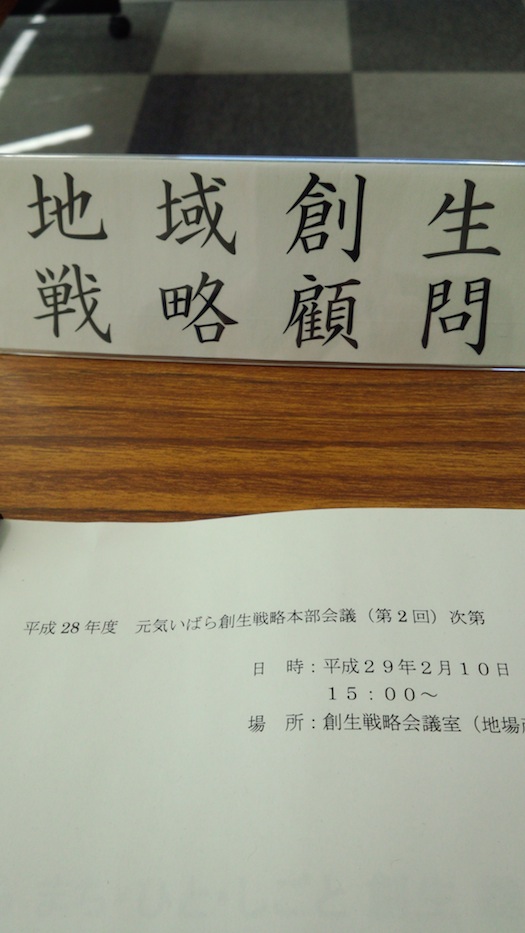 地域創生
戦略顧問
平成28年度　元気いばら創生戦略本部会議（第2回）次第
日　時：平成29年2月10日
15：00～
場　所：創生戦略会議室（地場